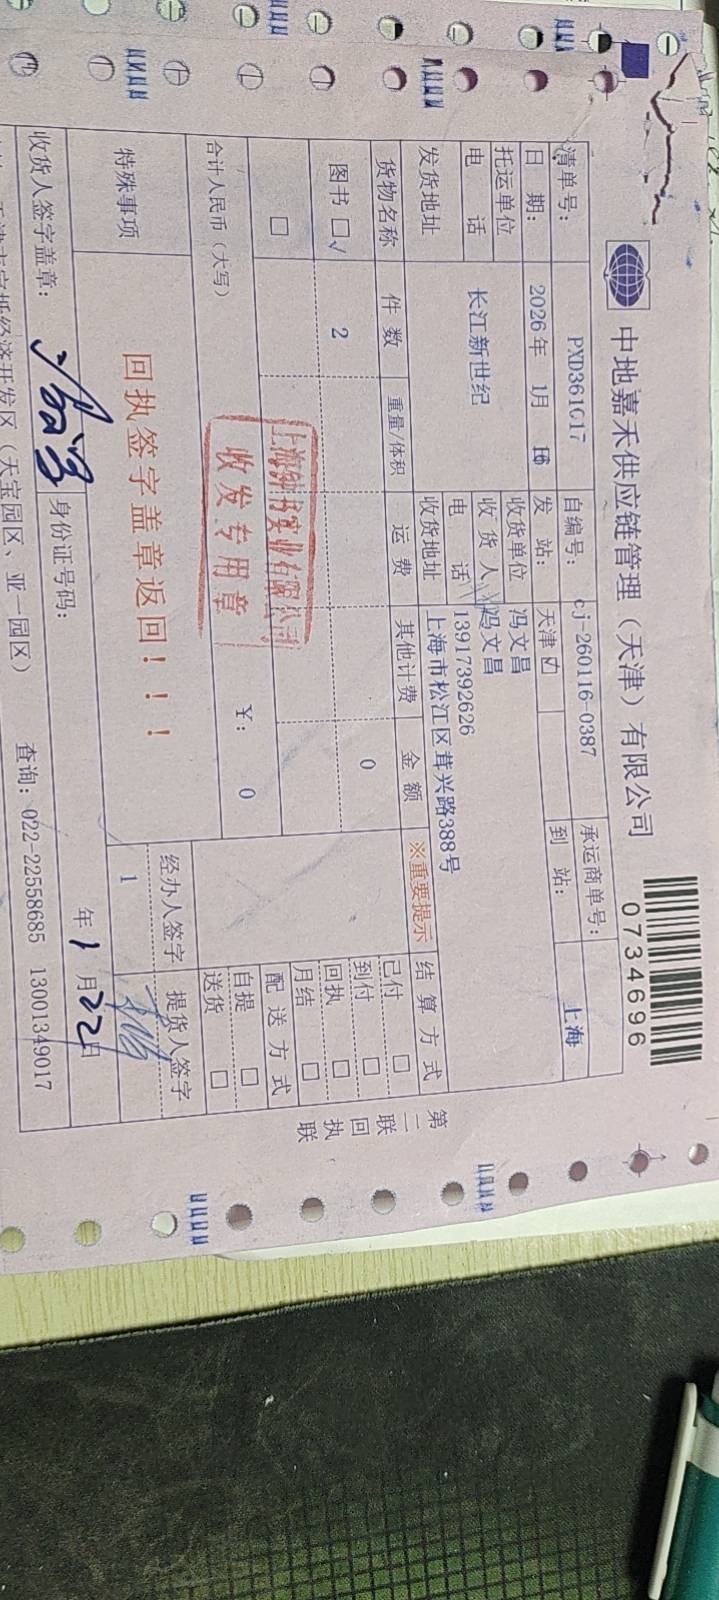 中地嘉禾供应链管理（天津）有限公司
0734696
清单号： PXD361G17 自编号： cj-260116-0387 承运商单号：
日 期： 2026年 1月 16 发 站： 天津 到 站： 上海
托运单位 收货单位 冯文昌
长江新世纪 收 货 人 冯文昌
电 话 电 话 13917392626
发货地址 收货地址 上海市松江区茸兴路388号
货物名称 件 数 重量/体积 运 费 其他计费 金 额 ※重要提示 结 算 方 式
图书 □√ 2 0
□
已付 □
到付 □
回执 □
月结 □
配 送 方 式
自提 □
送货 □
合计人民币（大写） ￥： 0
收发专用章
特殊事项 回执签字盖章返回！！！
经办人签字 提货人签字
1
收货人签字盖章： 身份证号码： 年 1 月 22 日
经济开发区（天宝园区、亚一园区） 查询：022-22558685 13001349017
第二联 回执联